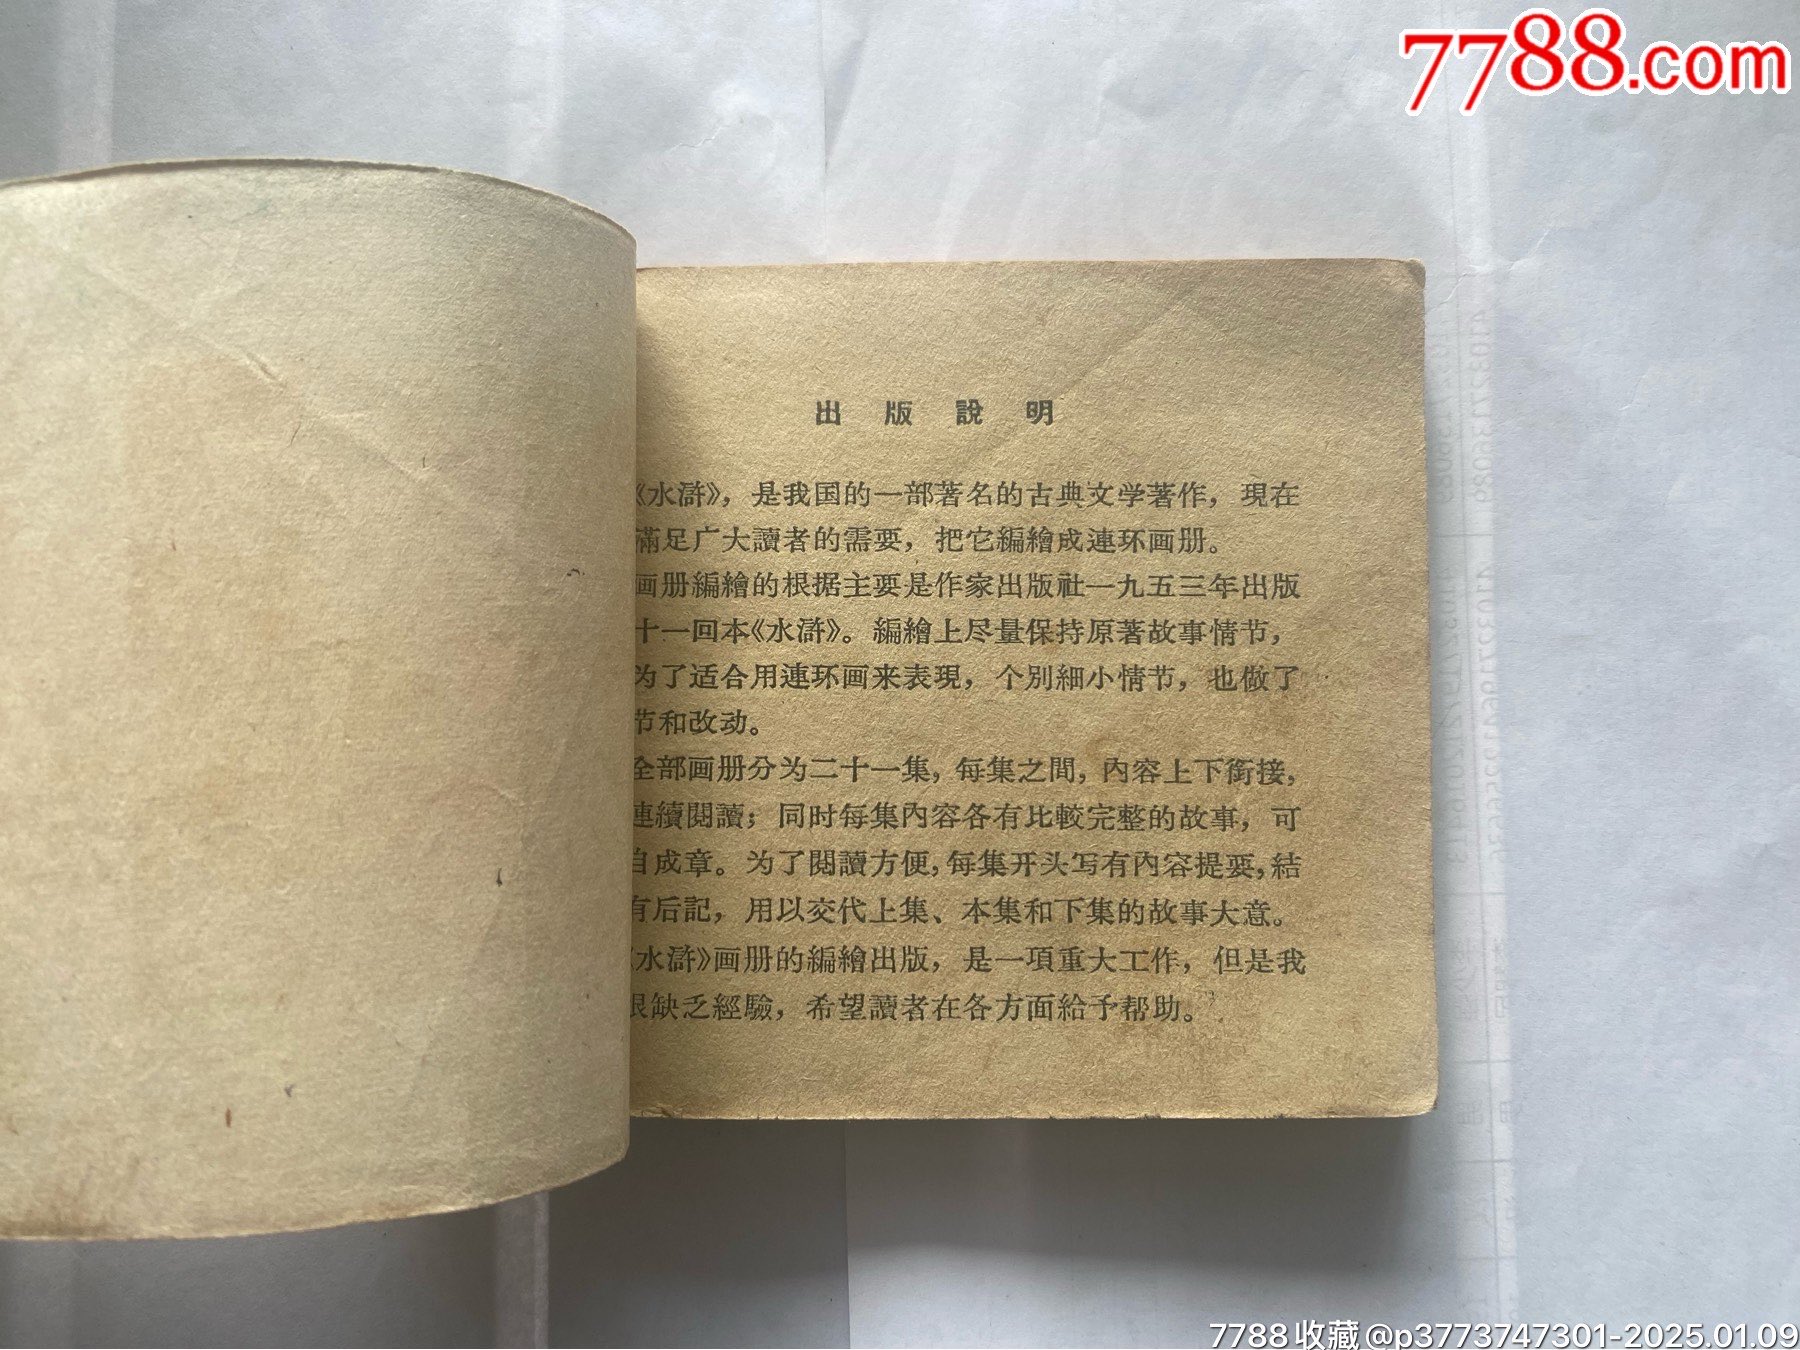 7788.com
出版說明
《水滸》，是我国的一部著名的古典文学著作，現在
滿足广大讀者的需要，把它編繪成連环画册。
画册編繪的根据主要是作家出版社一九五三年出版
十一回本《水滸》。編繪上尽量保持原著故事情节，
为了适合用連环画来表現，个別細小情节，也做了
节和改动。
全部画册分为二十一集，每集之間，內容上下銜接，
連續閱讀；同时每集內容各有比較完整的故事，可
自成章。为了閱讀方便，每集开头写有內容提要，結
有后記，用以交代上集、本集和下集的故事大意。
《水滸》画册的編繪出版，是一項重大工作，但是我
很缺乏經驗，希望讀者在各方面給予帮助。
7788收藏@p3773747301-2025.01.09